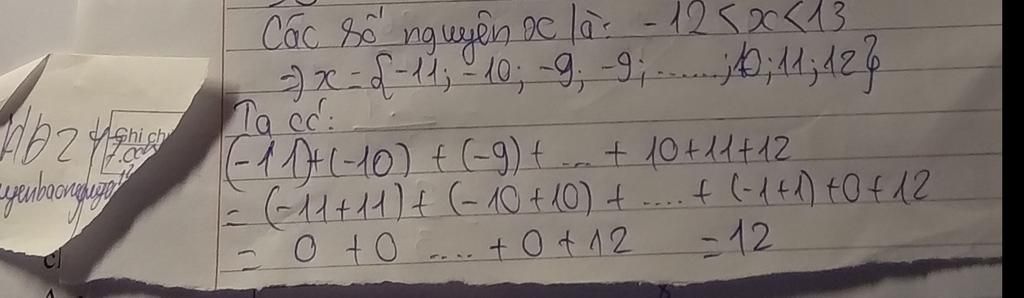 Các số nguyên x là: -12 < x < 13
=> x = {-11; -10; -9; -9; .....; 10; 11; 12}
Ta có:
(-11)+(-10) + (-9) + ... + 10+11+12
= (-11+11) + (-10+10) + .... + (-1+1) + 0 + 12
= 0 + 0 .... + 0 + 12 = 12
Ghi chú
c)